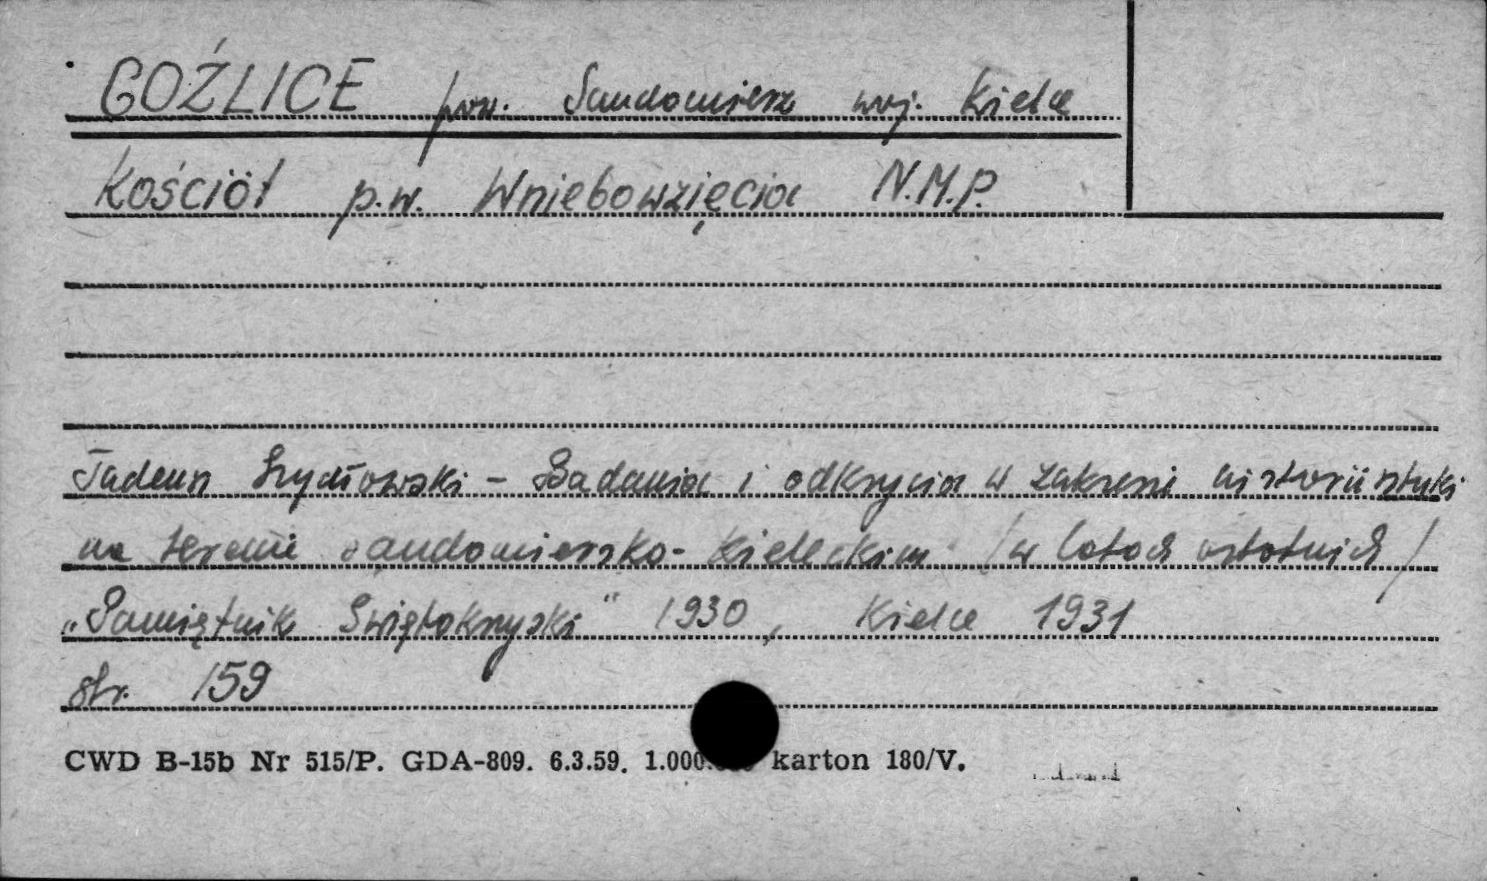 GOŹLICE pow. Sandomierz woj. Kielce
Kościół p.w. Wniebowzięcia N.M.P.
Tadeusz Szydłowski - Badania i odkrycia w zakresie historii sztuki
na terenie sandomiersko-kieleckim /w latach ostatnich/
„Pamiętnik Świętokrzyski" 1930, Kielce 1931
str. 159
CWD B-15b Nr 515/P. GDA-809. 6.3.59. 1.000. karton 180/V.